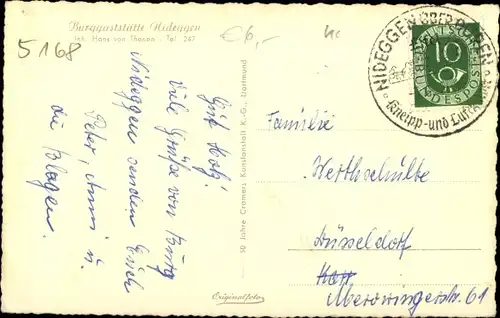 Burggaststätte Nideggen
Inh. Hans von Thenen · Tel. 247
5168
€6,-
Gut Holz!
Viele Grüße von Burg
Nideggen senden Euch
Peter, Anni u.
die Blagen.
50 Jahre Cramers Kunstanstalt K.-G., Dortmund
Originalfoto
NIDEGGEN ÜBER DÜREN
Kneipp- und Luft
DEUTSCHE
BUNDESPOST
10
Familie
Werthschulte
Düsseldorf
Merowingerstr. 61